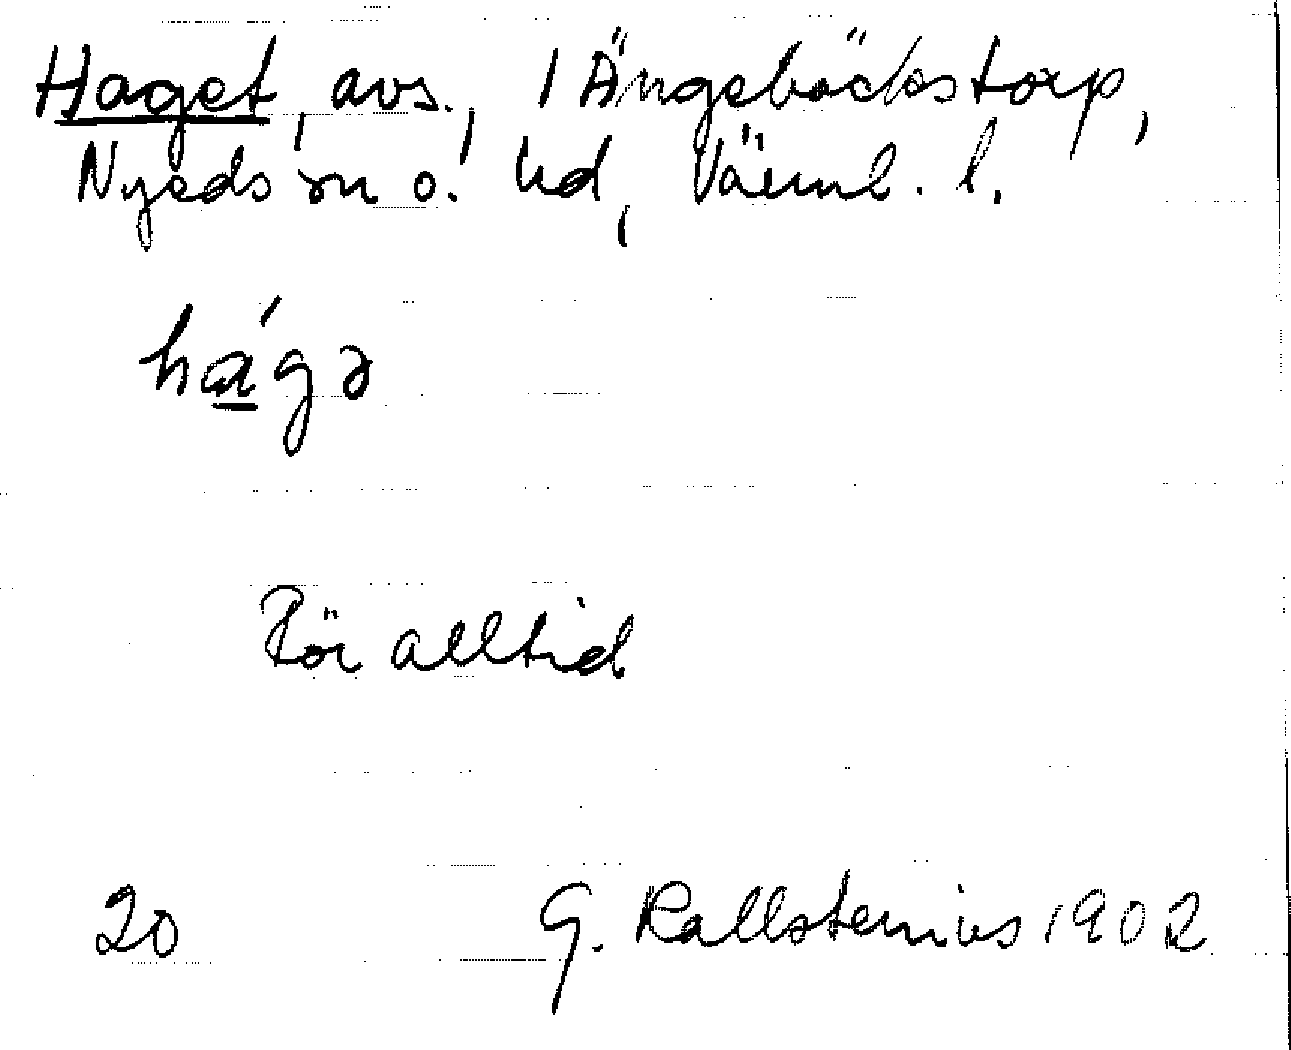 Haget, avs., 1 Ängebäckstorp,
Nyeds sn o. hd, Värml. l.
há̱gə
Rör alltid
20 G. Kallstenius 1902